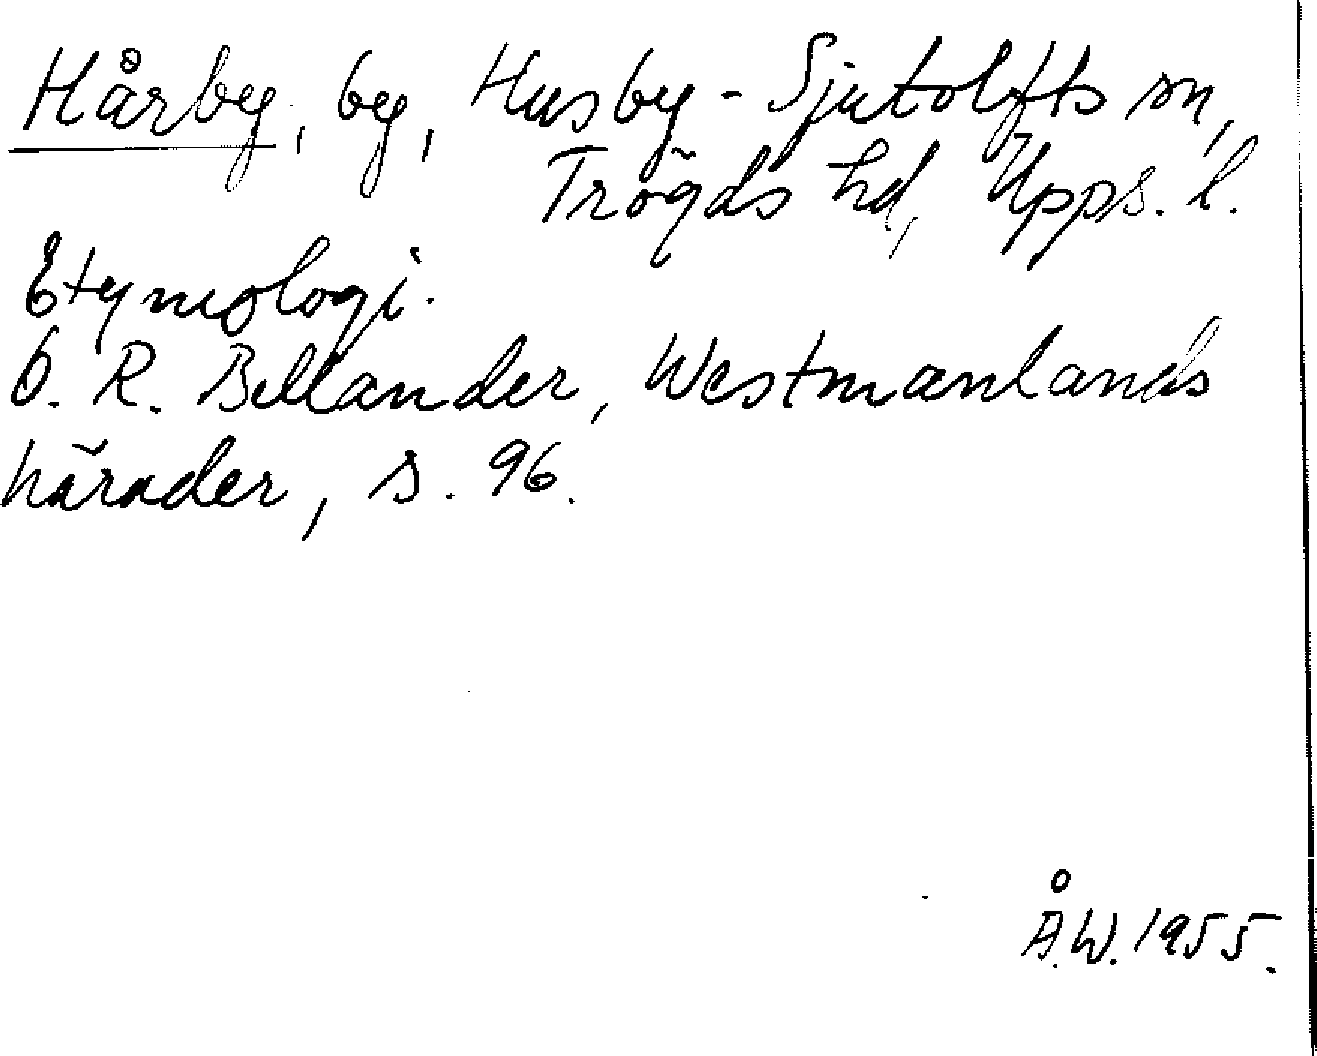 Hårby, by, Husby-Sjutolfts sn,
Trögds hd, Upps. l.
Etymologi.
O. R. Bellander, Westmanlands
härader, s. 96.
Å.W. 1955.